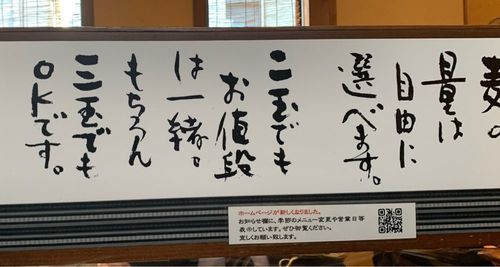 麺の
量は
自由に
選べます。
二玉でも
お値段
は一緒。
もちろん
三玉でも
OKです。
ホームページが新しくなりました。
お知らせ欄に、季節のメニュー変更や営業日等
表示しています。ぜひ御覧ください。
宜しくお願い致します。